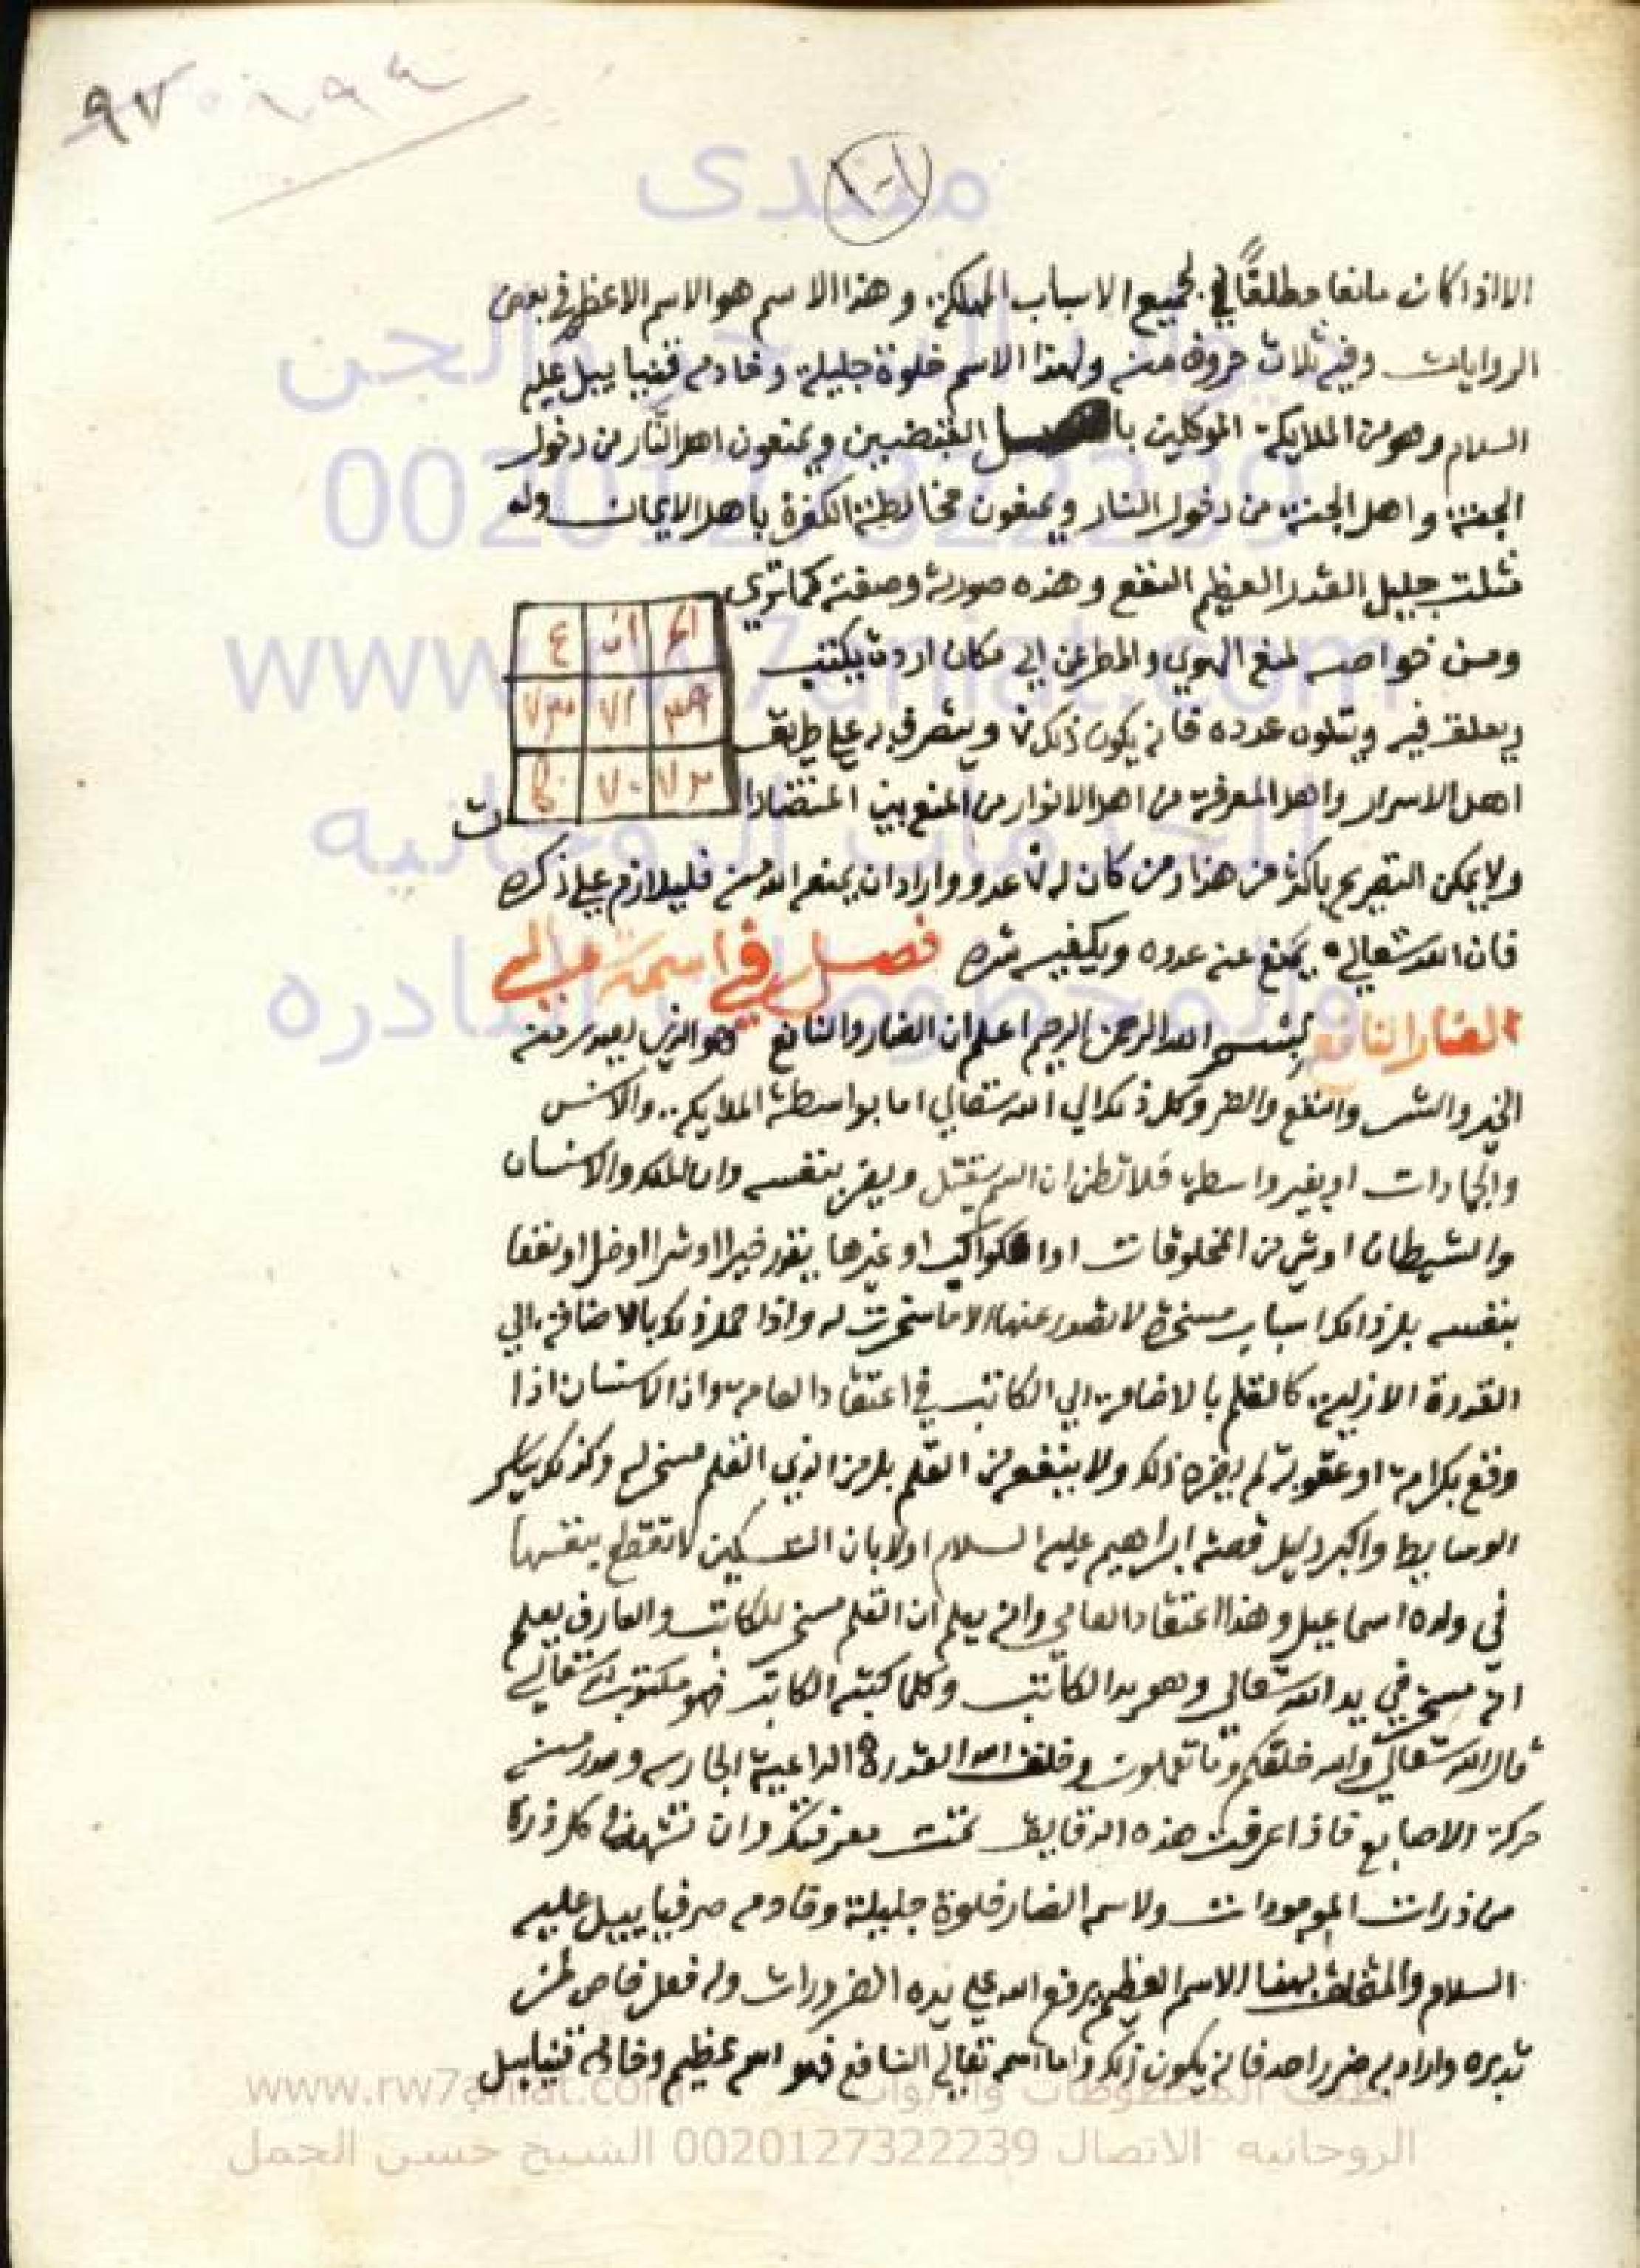 منتدى
الا اذا كان مانعا مطلقًا لجميع الاسباب المهلكة وهذا الاسم هو الاسم الاعظم في بعض
الروايات وفيه ثلاث حروف منه ولهذا الاسم خلوة جليلة وخادمه عليه
السلام وهو من الملايكة الموكلين ويمنعون اهل النار من دخول
الجنة واهل الجنة من دخول النار ويمنعون مخالطة الكفرة باهل الايمان وله
مثلث جليل القدر العظيم النفع وهذه صورته وصفته كما تري
ومن خواصه لمنع الهوي والمطر عن اي مكان اردت يكتب
ويعلق فيه ويتلون عدده فانه يكون ذلك ويتصرف به علي طريق
اهل الاسرار واهل المعرفة من اهل الانوار من المنع بين المتضادات
المع ان ع
٣٩ ٧١
٧٠
ولا يمكن التصريح باكثر من هذا ومن كان له عدو واراد ان يمنعه الله منه فليلازم علي ذكره
فان الله تعالي يمنع عنه عدوه ويكفيه شره فصل في اسمه تعالي
الضار النافع بسم الله الرحمن الرحيم اعلم ان الضار والنافع هو الذي يصدر منه
الخير والشر والنفع والضر وكل ذلك الي الله تعالي اما بواسطة الملايكة والانس
والجمادات او بغير واسطة فلا تظن ان السم يقتل ويضر بنفسه وان الملك والانسان
والشيطان او شي من المخلوقات او الكواكب او غيرها يقدر خيرا او شرا او ضرا او نفعا
بنفسه بل ذلك اسباب مسخرة لا تصدر عنها الا ما سخرت له واذا حمل ذلك بالاضافة الي
القدرة الازلية كالقلم بالاضافة الي الكاتب في اعتقاد العامي وان الانسان اذا
وقع بكرامة او عقوبة لم يضره ذلك ولا ينفعه من القلم بل من الذي القلم مسخر له وكذلك ساير
الوسايط واكبر دليل قصة ابراهيم عليه السلام اولا بان السكين لا تقطع بنفسها
في ولده اسماعيل وهذا اعتقاد العامي وانه يعلم ان القلم مسخر للكاتب والعارف يعلم
انه مسخر في يد الله تعالي وهو يد الكاتب وكلما كتبه الكاتب فهو مكتوب لله تعالي
قال الله تعالي والله خلقكم وما تعملون وخلق الله القدرة الداعية وصدر منه
حركة الاصابع فاذا عرفت هذه الدقايق تمت معرفتك وان تشهد كل ذرة
من ذرات الموجودات ولاسم الضار خلوة جليلة وخادمه صرفياييل عليه
السلام والمتخلق بهذا الاسم العظيم يرفع الله علي يده الضرورات وله فعل خاص لمن
تدبره واراد به ضرر احد فانه يكون ذلك واما اسمه تعالي النافع فهو اسم عظيم وخادمه
www.rw7aniat.com لطلب المخطوطات والابواب
الروحانيه الاتصال 0020127322239 الشيخ حسن الجمل